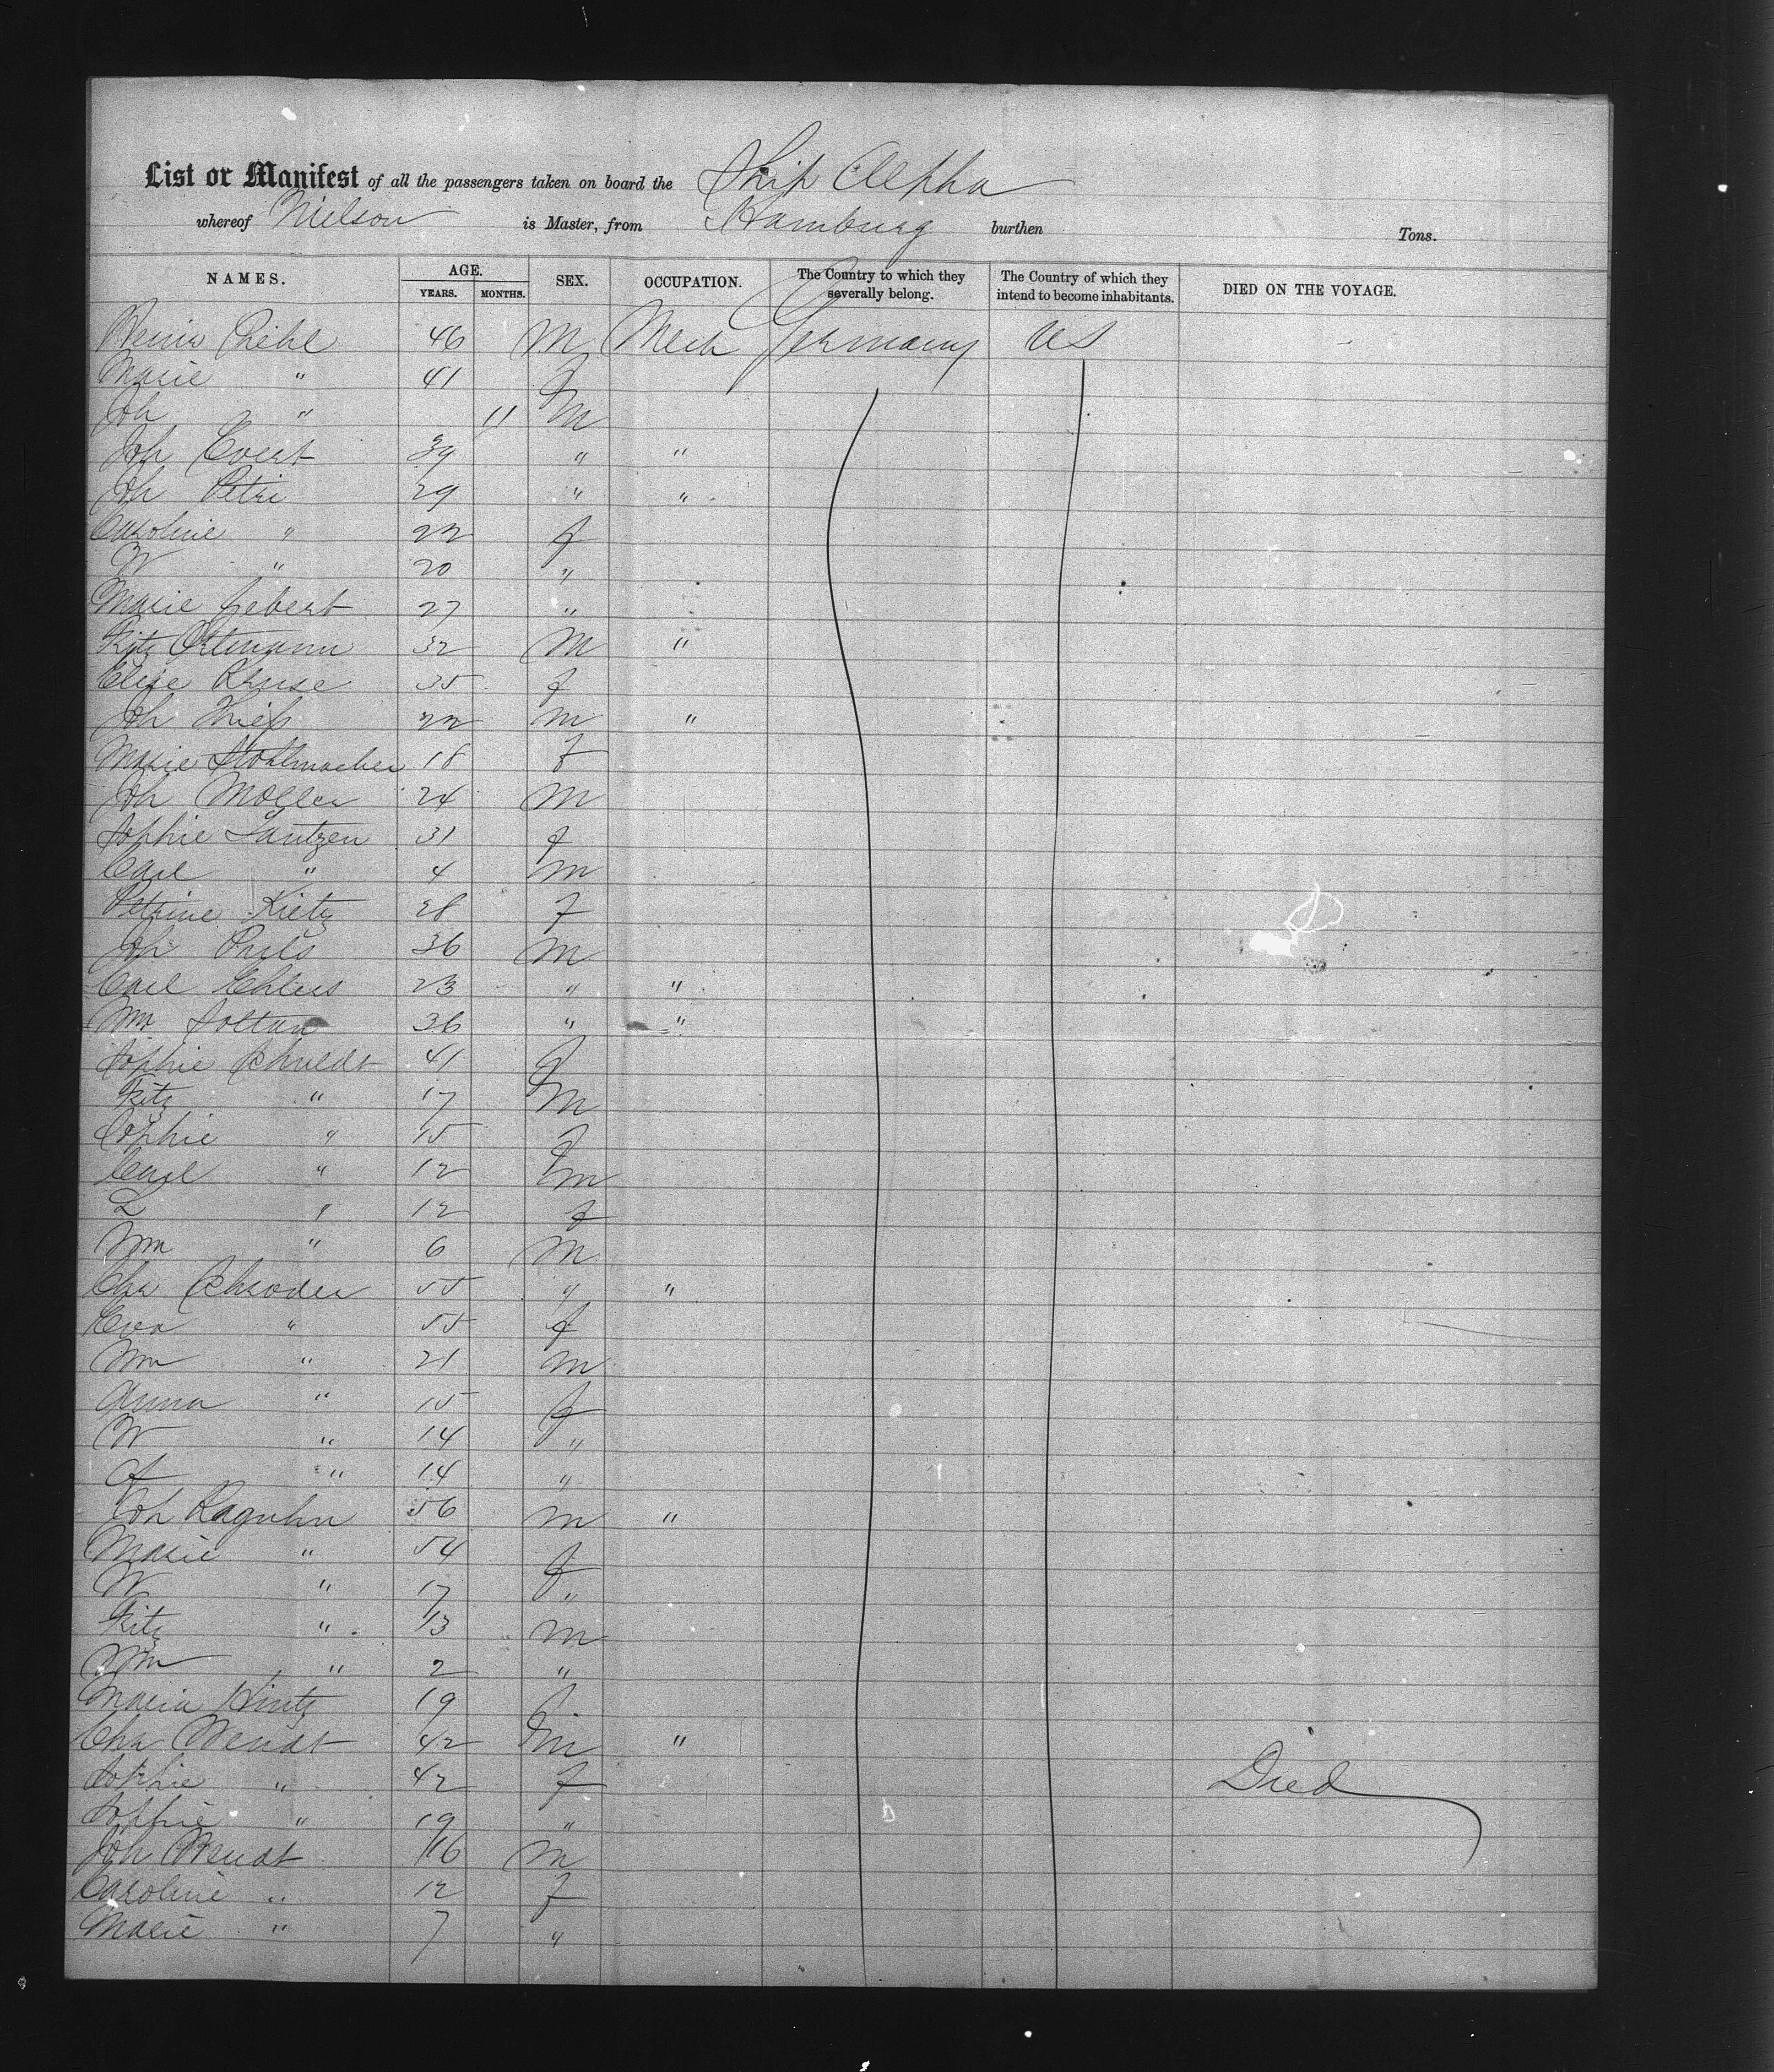 List or Manifest of all the passengers taken on board the Ship Alpha
whereof Nielson is Master, from Hamburg burthen Tons.
NAMES. AGE. YEARS. MONTHS. SEX. OCCUPATION. The Country to which they severally belong. The Country of which they intend to become inhabitants. DIED ON THE VOYAGE.
46 M Mech Germany US
Marie " 41 f
Joh " 11 M
Joh Evert 39 " "
Joh Petri 29 " "
Caroline " 22 f
W " 20 "
Marie Gebert 27 "
Fritz Ottmann 32 M "
Elise Kruse 35 f
Joh 22 m "
Marie Stohlmacher 18 f
Joh Moller 24 M
Sophie Lantzen 31 f
Carl " 4 m
Petrine Kietz 28 f
Joh 36 M
Carl Ehlers 23 " "
Wm Soltan 36 " "
Sophie 41 f
Fritz " 17 M
Sophie " 15 f
Carl " 12 m
L " 12 f
Wm " 6 M
Chr Schroder 55 " "
Eva " 55 f
Wm " 21 m
Anna " 15 f
W " 14 "
" 14 "
Joh Raguhn 56 m "
Marie " 54 f
W " 17 "
Fritz " 13 m
Wm " 2 "
Maria Hintz 19 f
Chr Wendt 42 m "
Sophie " 42 f Died
Sophie " 19 "
Joh Wendt 16 m
Caroline " 12 f
Marie " 7 "